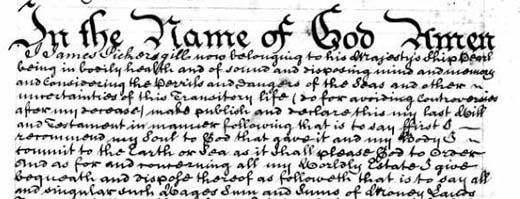 In the Name of God Amen
I James Pickersgill now belonging to his Majestys Ship Pearl
being in bodily health and of sound and disposing mind and memory
and Considering the Perrils and dangers of the Seas and other
uncertainties of this Transitory life (do for avoiding Controversies
after my decease) make publish and declare this my last Will
and Testament in manner following that is to say ffirst I
recommend my Soul to God that gave it and my Body I
commit to the Earth or Sea as it shall please God to Order
And as for and concerning all my Worldly Estate I give
bequeath and dispose thereof as followeth that is to say all
and singular such Wages Sum and Sums of Money Lands